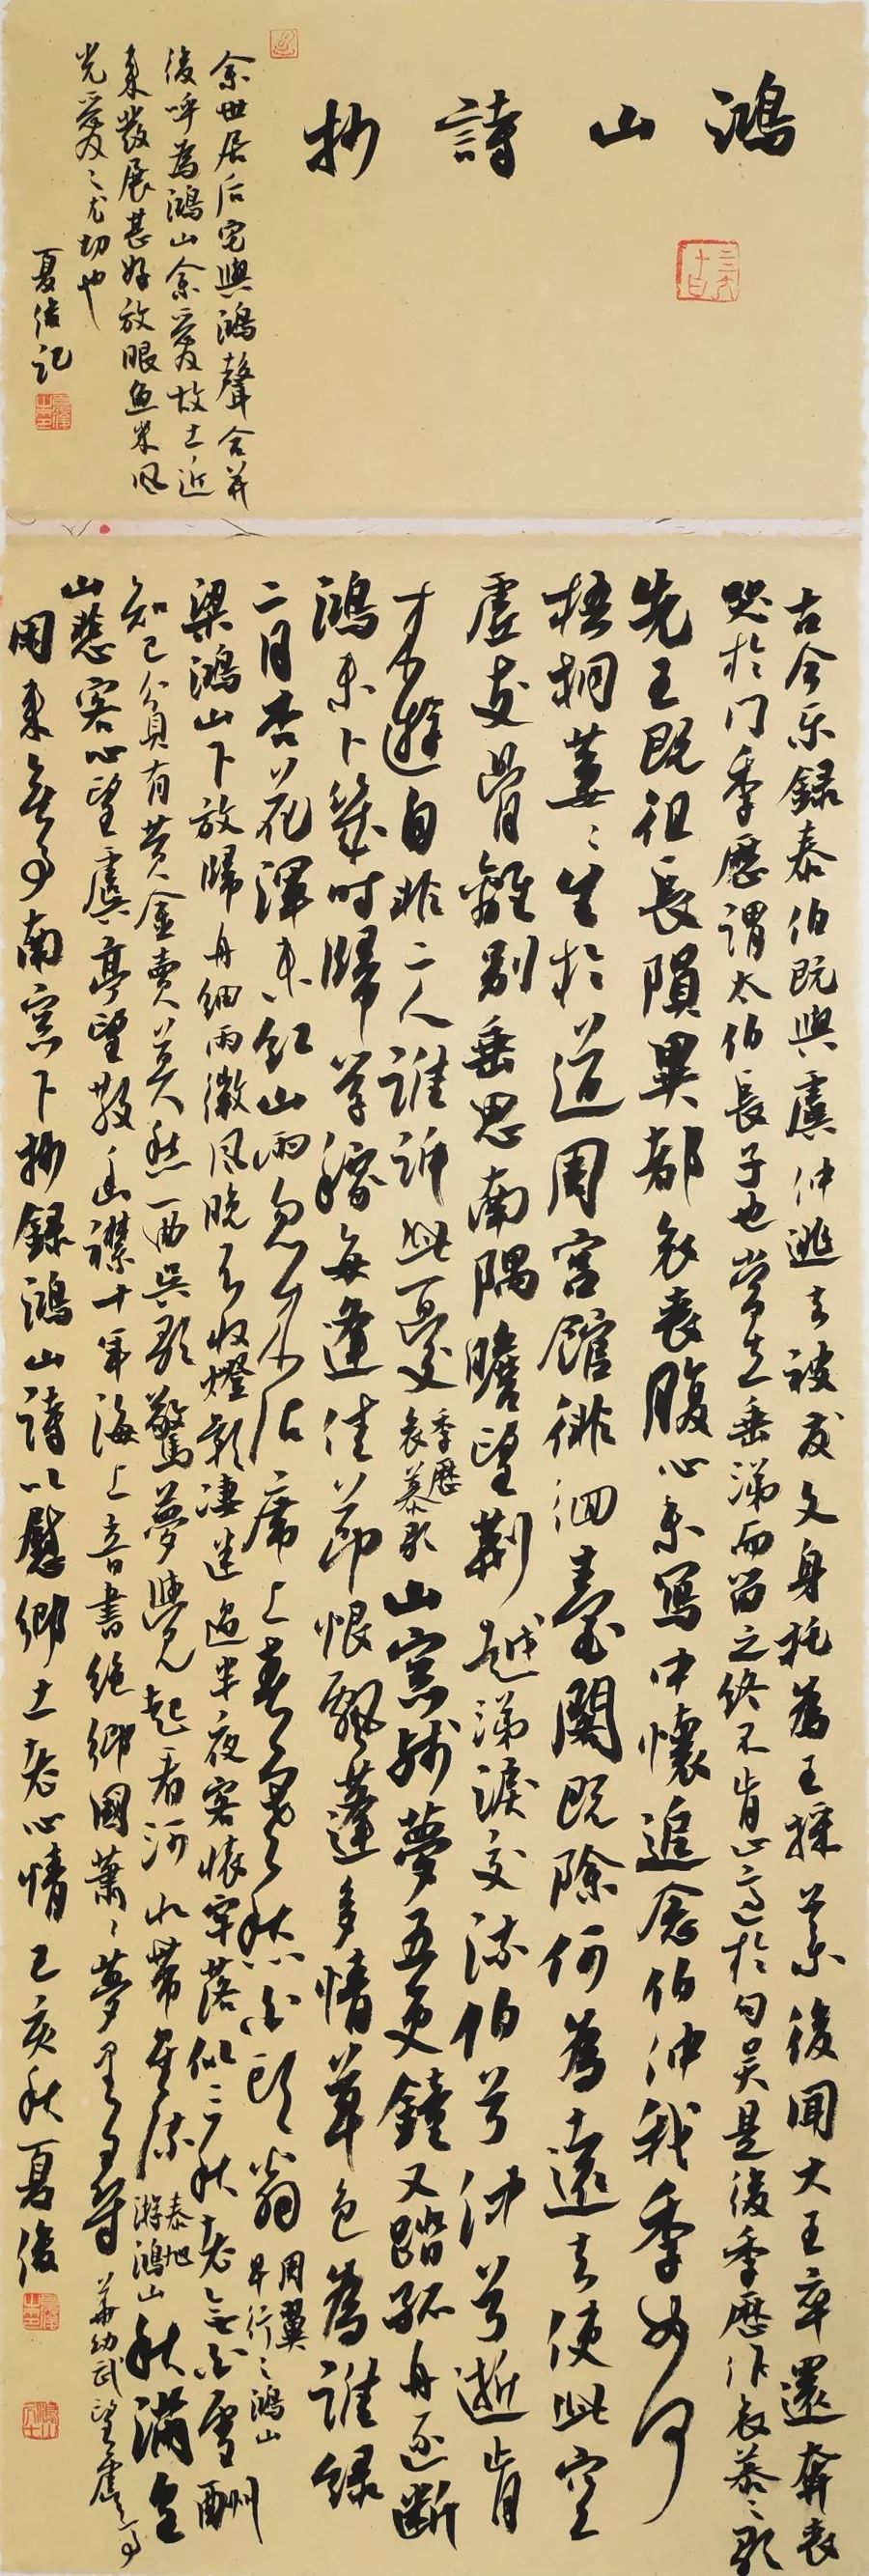 鴻山詩抄
余世居后宅與鴻聲合并
後呼為鴻山余愛故土近
來發展甚好放眼魚米風
光愛之尤切也
夏俊記
古今樂錄泰伯既與虞仲逃去被髮文身托為王採藥後聞大王卒還奔喪
哭於門季歷謂太伯長子也當立垂涕而留之終不肯止適於句吳是後季歷作哀慕之歌
先王既徂長隕異都哀喪腹心未寫中懷追念伯仲我季如何
梧桐萋萋生於道周宮館徘徊臺閣既除何為遠去使此空
虛支骨離別垂思南隅瞻望荊越涕淚交流伯兮仲兮逝肯
來遊自非二人誰訴此憂 季歷哀慕歌 山窗殘夢五更鐘又踏孤舟逐斷
鴻未卜幾時歸學稼每逢佳節恨飄蓬多情草色為誰綠
二月杏花渾未紅山雨忽來沾席上春愁不 翁 周翼早行之鴻山
梁鴻山下放歸舟細雨微風晚不收燈影凄迷過半夜客懷牢落似三秋老無白雪酬
知己貧有黃金賣莫愁一曲吳歌驚夢覺起看河水帶星流 泰旭游鴻山 秋滿皇
山悲客心望虞亭望散幽襟十年海上音書絕鄉國蕭蕭夢裏尋 華幼武望虞亭
用東 南窗下抄錄鴻山詩以慰鄉土老心情己亥秋夏俊